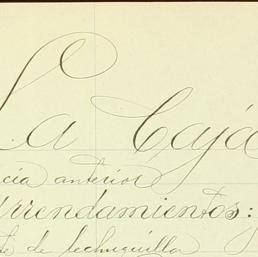 La Caja
cia anterior
Arrendamientos:
te de lechuguilla